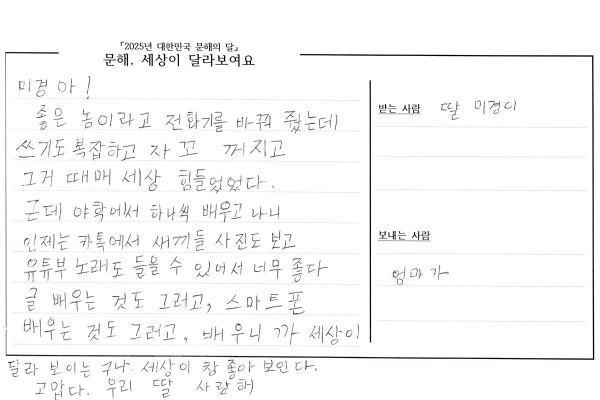 「2025년 대한민국 문해의 달」
문해, 세상이 달라보여요
미경아!
좋은 놈이라고 전화기를 바꿔 줬는데
쓰기도 복잡하고 자꼬 꺼지고
그거 때매 세상 힘들었었다.
근데 야학에서 하나씩 배우고 나니
인제는 카톡에서 새끼들 사진도 보고
유튜부 노래도 들을 수 있어서 너무 좋다
글 배우는 것도 그러고, 스마트폰
배우는 것도 그러고, 배우니까 세상이
달라 보이는구나. 세상이 참 좋아 보인다.
고맙다. 우리 딸 사랑해
받는 사람 딸 미경이
보내는 사람
엄마가